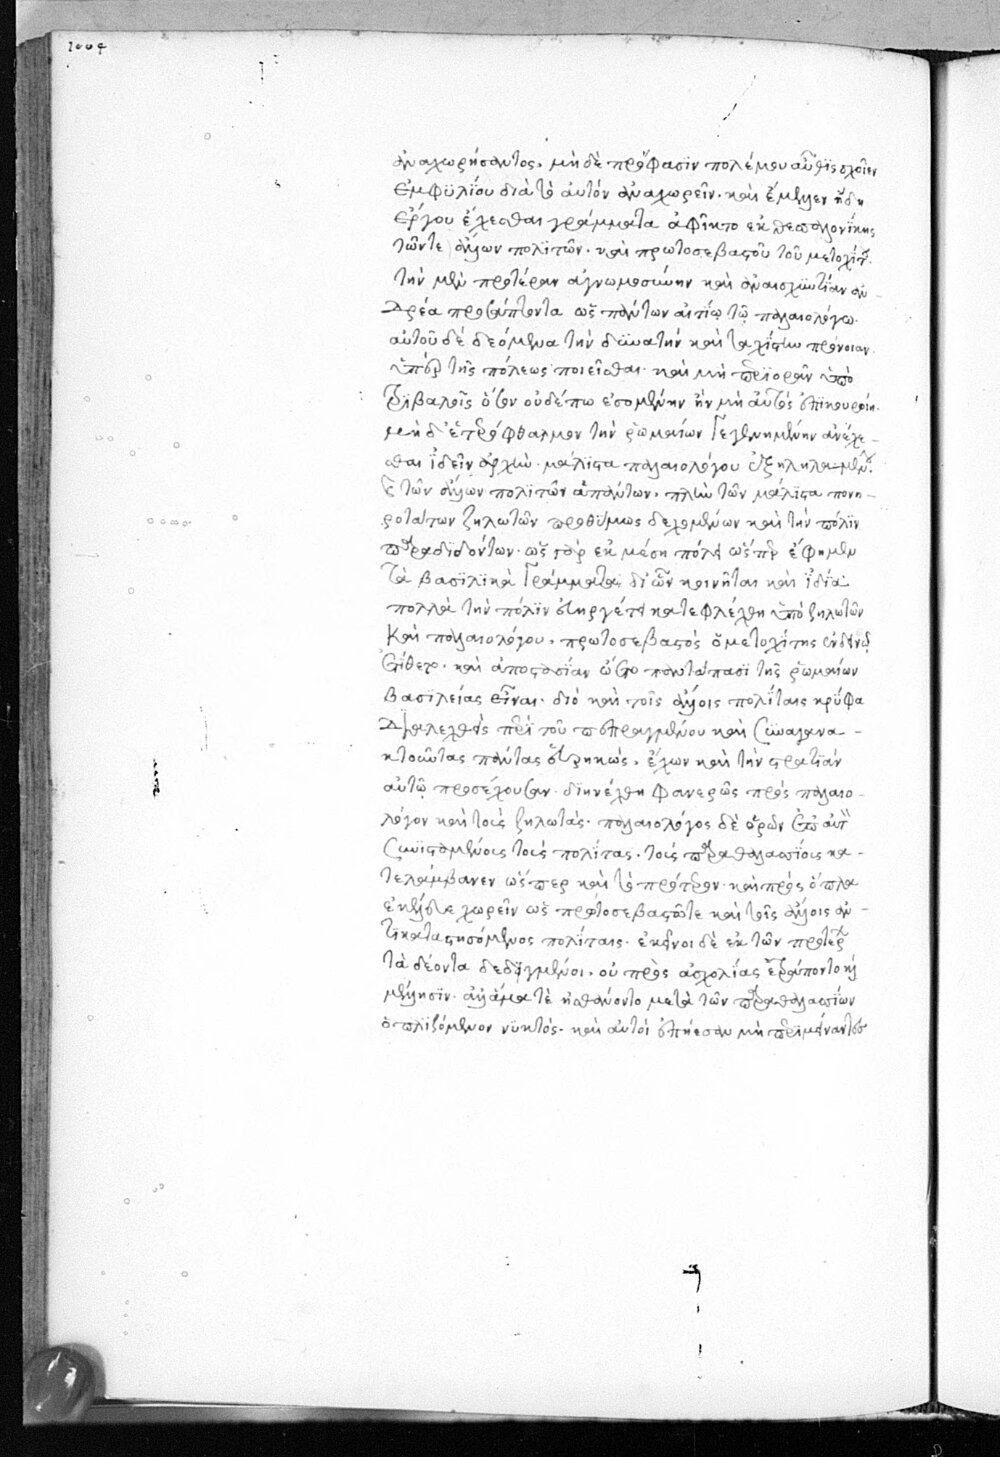 1004
ἀναχωρήσαντος, μὴ δὲ πρόφασιν πολέμου αὖθις σχοῖεν
ἐμφϋλίου διὰ τὸ αὐτὸν ἀναχωρεῖν. καὶ ἔμελλεν ἤδη
ἔργου ἔχεσθαι γράμματα ἀφῖκτο ἐκ θεσσαλονίκης
τῶν τε ἄλλων πολιτῶν. καὶ πρωτοσεβαστοῦ τοῦ μετοχίτου.
τὴν μὲν προτέραν ἀγνωμοσύνην καὶ ἀναισχυντίαν ἀν-
δρέα προσάπτοντα ὡς πάντων αἰτίῳ τῷ παλαιολόγῳ.
αὐτοῦ δὲ δεόμενα τὴν δυνατὴν καὶ ταχίστην πρόνοιαν
ὑπὲρ τῆς πόλεως ποιεῖσθαι. καὶ μὴ περιορᾶν ὑπὸ
τριβαλοῖς ὅσον οὐδέπω ἐσομένην ἢν μὴ αὐτὸς ἐπικουροίη.
μὴ δ' ἑτερόφθαλμον τὴν ῥωμαίων γεγενημένην ἀνέχε-
σθαι ἰδεῖν ἀρχὴν. μάλιστα παλαιολόγου ἐξεληλαμένου.
ἐκ τῶν ἄλλων πολιτῶν ἁπάντων, πλὴν τῶν μάλιστα πονη-
ροτάτων ζηλωτῶν προθύμως δεχομένων καὶ τὴν πόλιν
παραδιδόντων. ὡς γὰρ ἐκ μέση πόλει ὥσπερ ἔφημεν
τὰ βασιλικὰ γράμματα, δι' ὧν κοινῆται καὶ ἰδίᾳ
πολλὰ τὴν πόλιν εὐηργέτει κατεφλέχθη ὑπὸ ζηλωτῶν
καὶ παλαιολόγου, πρωτοσεβαστὸς ὁ μετοχίτης
καὶ ἀποστασίαν ᾤετο πανταπασὶ τῆς ῥωμαίων
βασιλείας εἶναι. διὸ καὶ τοῖς ἄλλοις πολίταις κρύφα
διαλεχθεὶς περὶ τοῦ πεπραγμένου καὶ συναγανα-
κτοῦντας πάντας εὑρηκὼς, ἔχων καὶ τὴν στρατιὰν
αὐτῷ προσέχουσαν. διηνέχθη φανερῶς πρὸς παλαιο-
λόγον καὶ τοὺς ζηλωτάς. παλαιολόγος δὲ ὁρῶν ἐπ' αὐτὸν
συνισταμένους τοὺς πολίτας. τοὺς παραθαλασσίους κα-
τελάμβανεν ὥσπερ καὶ τὸ πρότερον. καὶ πρὸς ὅπλα
ἐκέλευε χωρεῖν ὡς πρωτοσεβαστῷ τε καὶ τοῖς ἄλλοις ἀν-
τικαταστησόμενος πολίταις. ἐκεῖνοι δὲ ἐκ τῶν προτέρων
τὰ δέοντα δεδιδαγμένοι, οὐ πρὸς ἀσχολίας ἐτράποντο καὶ
μέλλησιν. ἀλλ' ἅμα τὲ ᾐσθάνοντο μετὰ τῶν παραθαλασσίων
ὁπλιζόμενον νυκτὸς. καὶ αὐτοὶ ἐπῄεσαν μὴ περιμείναντες